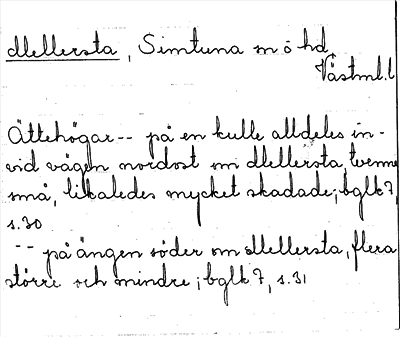 Mellersta, Simtuna sn ö hd,
Västml. l.
Ättehögar -- på en kulle alldeles in-
vid vägen nordost om Mellersta, tvenne
små, likaledes mycket skadade; bglk 7,
s. 30
-- på ängen söder om Mellersta, flera
större och mindre; bglk 7, s. 31